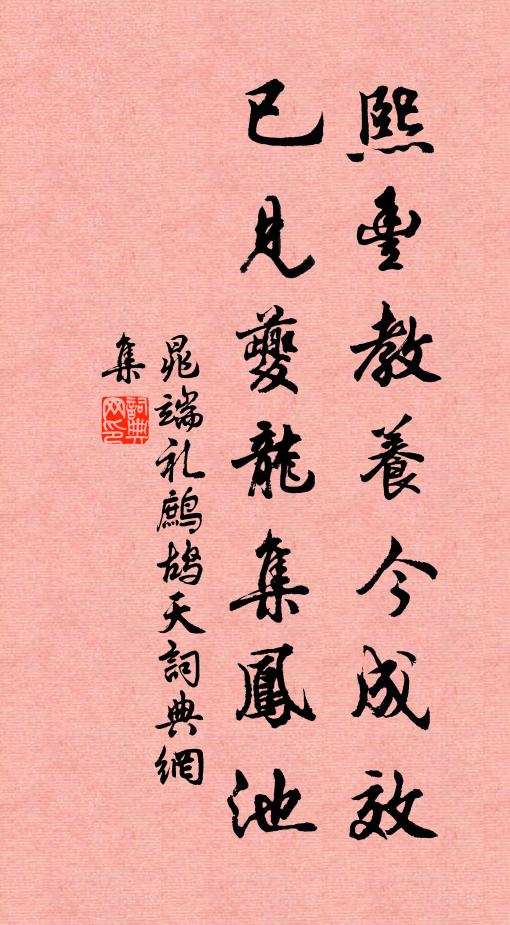 熙豐教養今成效
已見夔龍集鳳池
晁端礼鷓鴣天詞典網
集
詞典網印